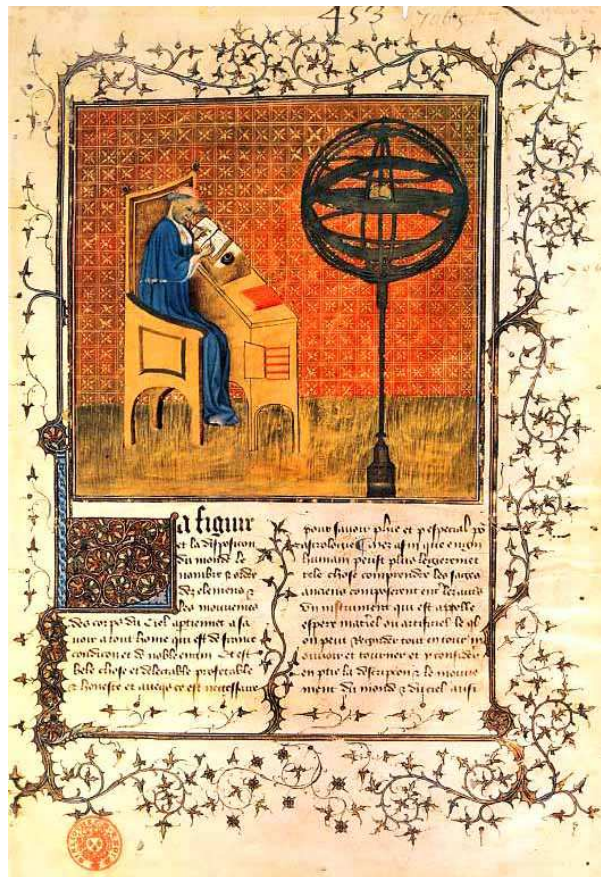 453
a figure
et la disposition
du monde le
nombre et ordre
des elemens et
les mouvemens
des corps du ciel aptienent a sa
voir a tout home qui est de franche
condicion et de noble engin Et est
bele chose et delectable profetable
et honeste et est necessaire
pour savoir et especial
astrologie afin que engin
humain peust plus legierement
tele chose comprendre les sages
anciens composerent
un instrument qui est appelle
espere materiel ou artificiel
on peut regarder tout entour
mouvoir et tourner et considerer
en partie la discripcion et le mouve
ment du monde et du ciel aussi